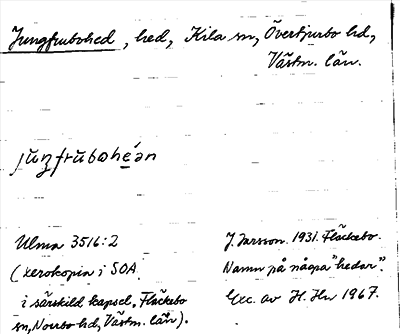 Jungfrubohed, hed, Kila sn, Övertjurbo hd,
Västm. län.
Ulma 3516:2
(xerokopia i SOA
i särskild kapsel, Fläckebo
sn, Norrbo hd, Västm. län).
J. Larsson. 1931. Fläckebo.
Namn på några "hedar".
Exc. av H. Hn 1967.